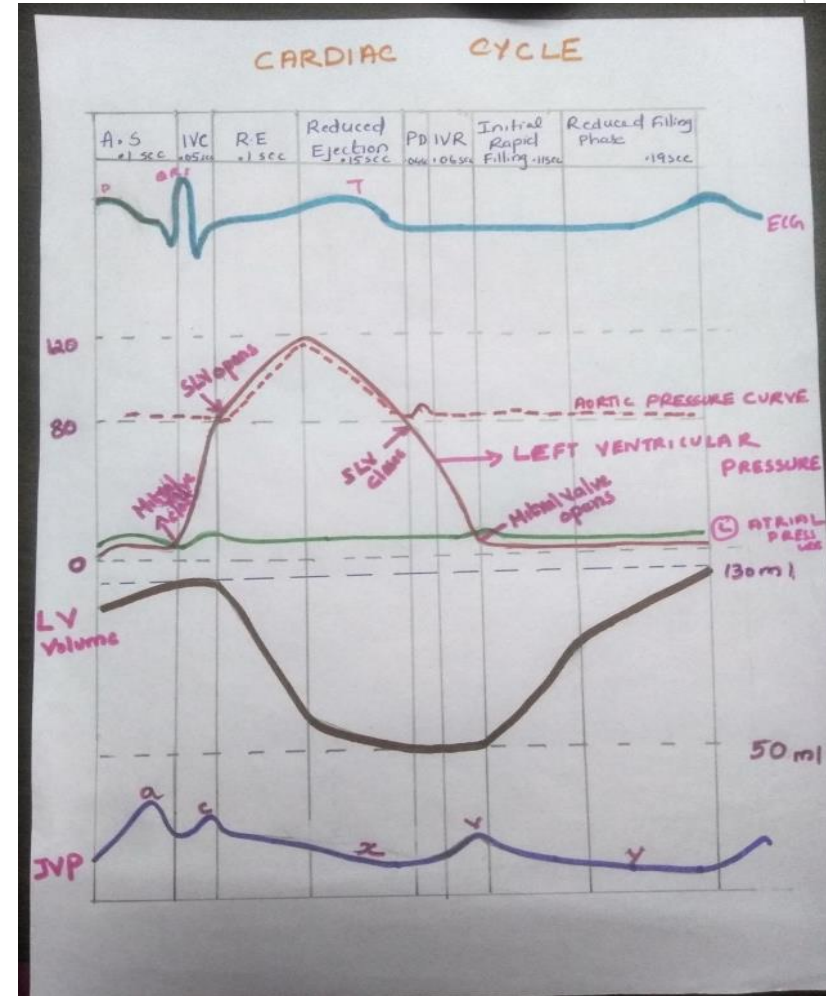 CARDIAC CYCLE
A.S
.1 sec
IVC
.05sec
R.E
.1 sec
Reduced
Ejection
.15sec
PD
IVR
.06sec
Initial
Rapid
Filling .11sec
Reduced Filling
Phase
.19sec
P
QRS
T
ECG
120
SLV opens
AORTIC PRESSURE CURVE
80
SLV
LEFT VENTRICULAR
PRESSURE
Mitral valve
opens
L ATRIAL
PRESS
URE
0
130ml
LV
Volume
50ml
a
c
x
v
y
JVP